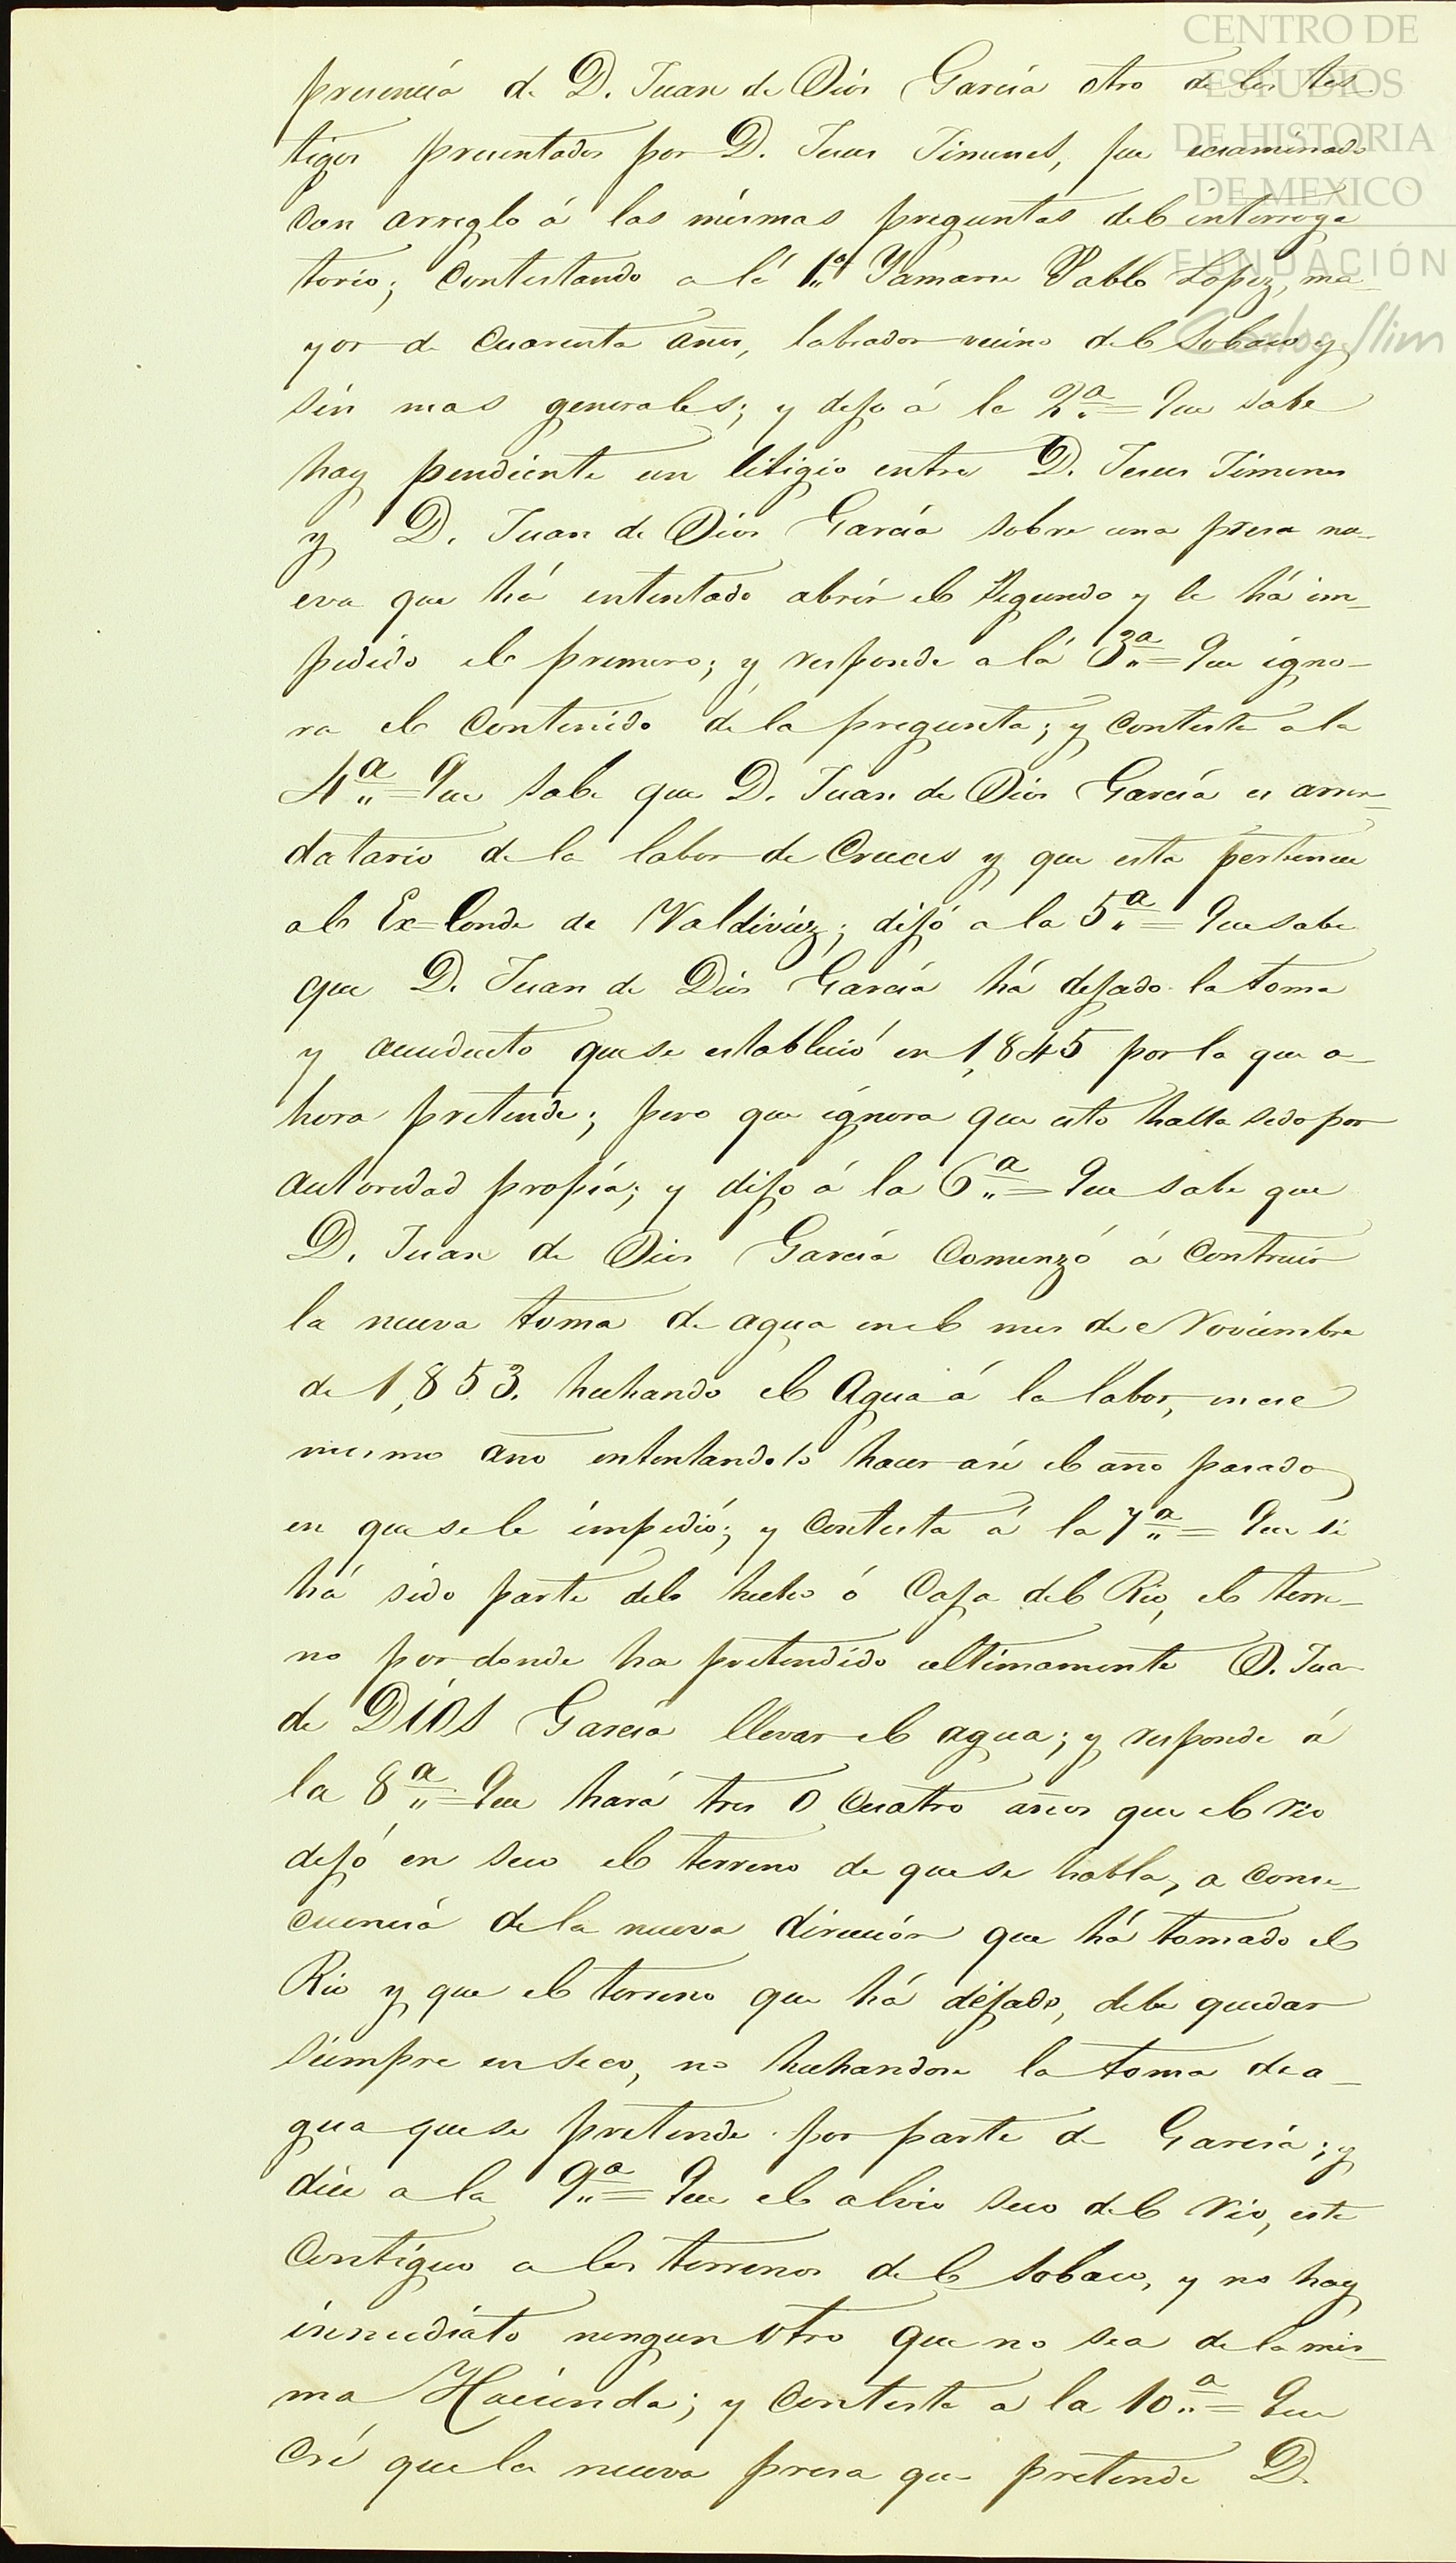 CENTRO DE
ESTUDIOS
DE HISTORIA
DE MEXICO
FUNDACIÓN
Carlos Slim
presencia de D. Juan de Dios García otro de los tes-
tigos presentados por D. Jesus Jimenes, fue ecsaminado
con arreglo á las mismas preguntas del interroga
torio; contestando a lá 1ª Yamarse Pablo Lopez, ma-
yor de cuarenta años, labrador vecino del Sobaco y
sin mas generales; y dijo á la 2ª = Que sabe
hay pendiente un litigio entre D. Jesus Jimenes
y D. Juan de Dios García sobre una presa nu-
eva que há intentado abrir el segundo y le há im-
pedido el primero; y responde a lá 3ª = Que igno-
ra el contenido de la pregunta; y contesta a la
4ª = Que sabe que D. Juan de Dios García es arren-
datario de la labor de Cruces y que esta pertenece
al Ex-Conde de Valdiviez; dijó a la 5ª = Que sabe
que D. Juan de Dios García há dejado la toma
y acueducto que se estableció en 1,845 por la que a-
hora pretende; pero que ignora que esto halla sido por
autoridad propia; y dijo á la 6ª = Que sabe que
D. Juan de Dios García Comenzó á Contruir
la nueva toma de agua en el mes de Noviembre
de 1,853. hechando el Agua á la labor, en ese
mismo año intentandolo hacer asi el año pasado
en que se le impidió; y Contesta á la 7ª = Que si
há sido parte del hecho ó Caja del Rio, el terre-
no por donde ha pretendido ultimamente D. Juan
de Dios García llevar el agua; y responde á
la 8ª = Que hará tres o cuatro años que el rio
dejó en seco el terreno de que se habla, a conse-
cuencia de la nueva dirección que há tomado el
Rio y que el terreno que há dejado, debe quedar
siempre en seco, no hechandose la toma de a-
gua que se pretende por parte de García; y
dice a la 9ª = Que el alvio seco del rio, este
Contiguo a los terrenos del Sobaco, y no hay
inmediato ningun otro que no sea de la mis-
ma Hacienda; y Contesta a la 10ª = Que
Cré que la nueva presa que pretende D.